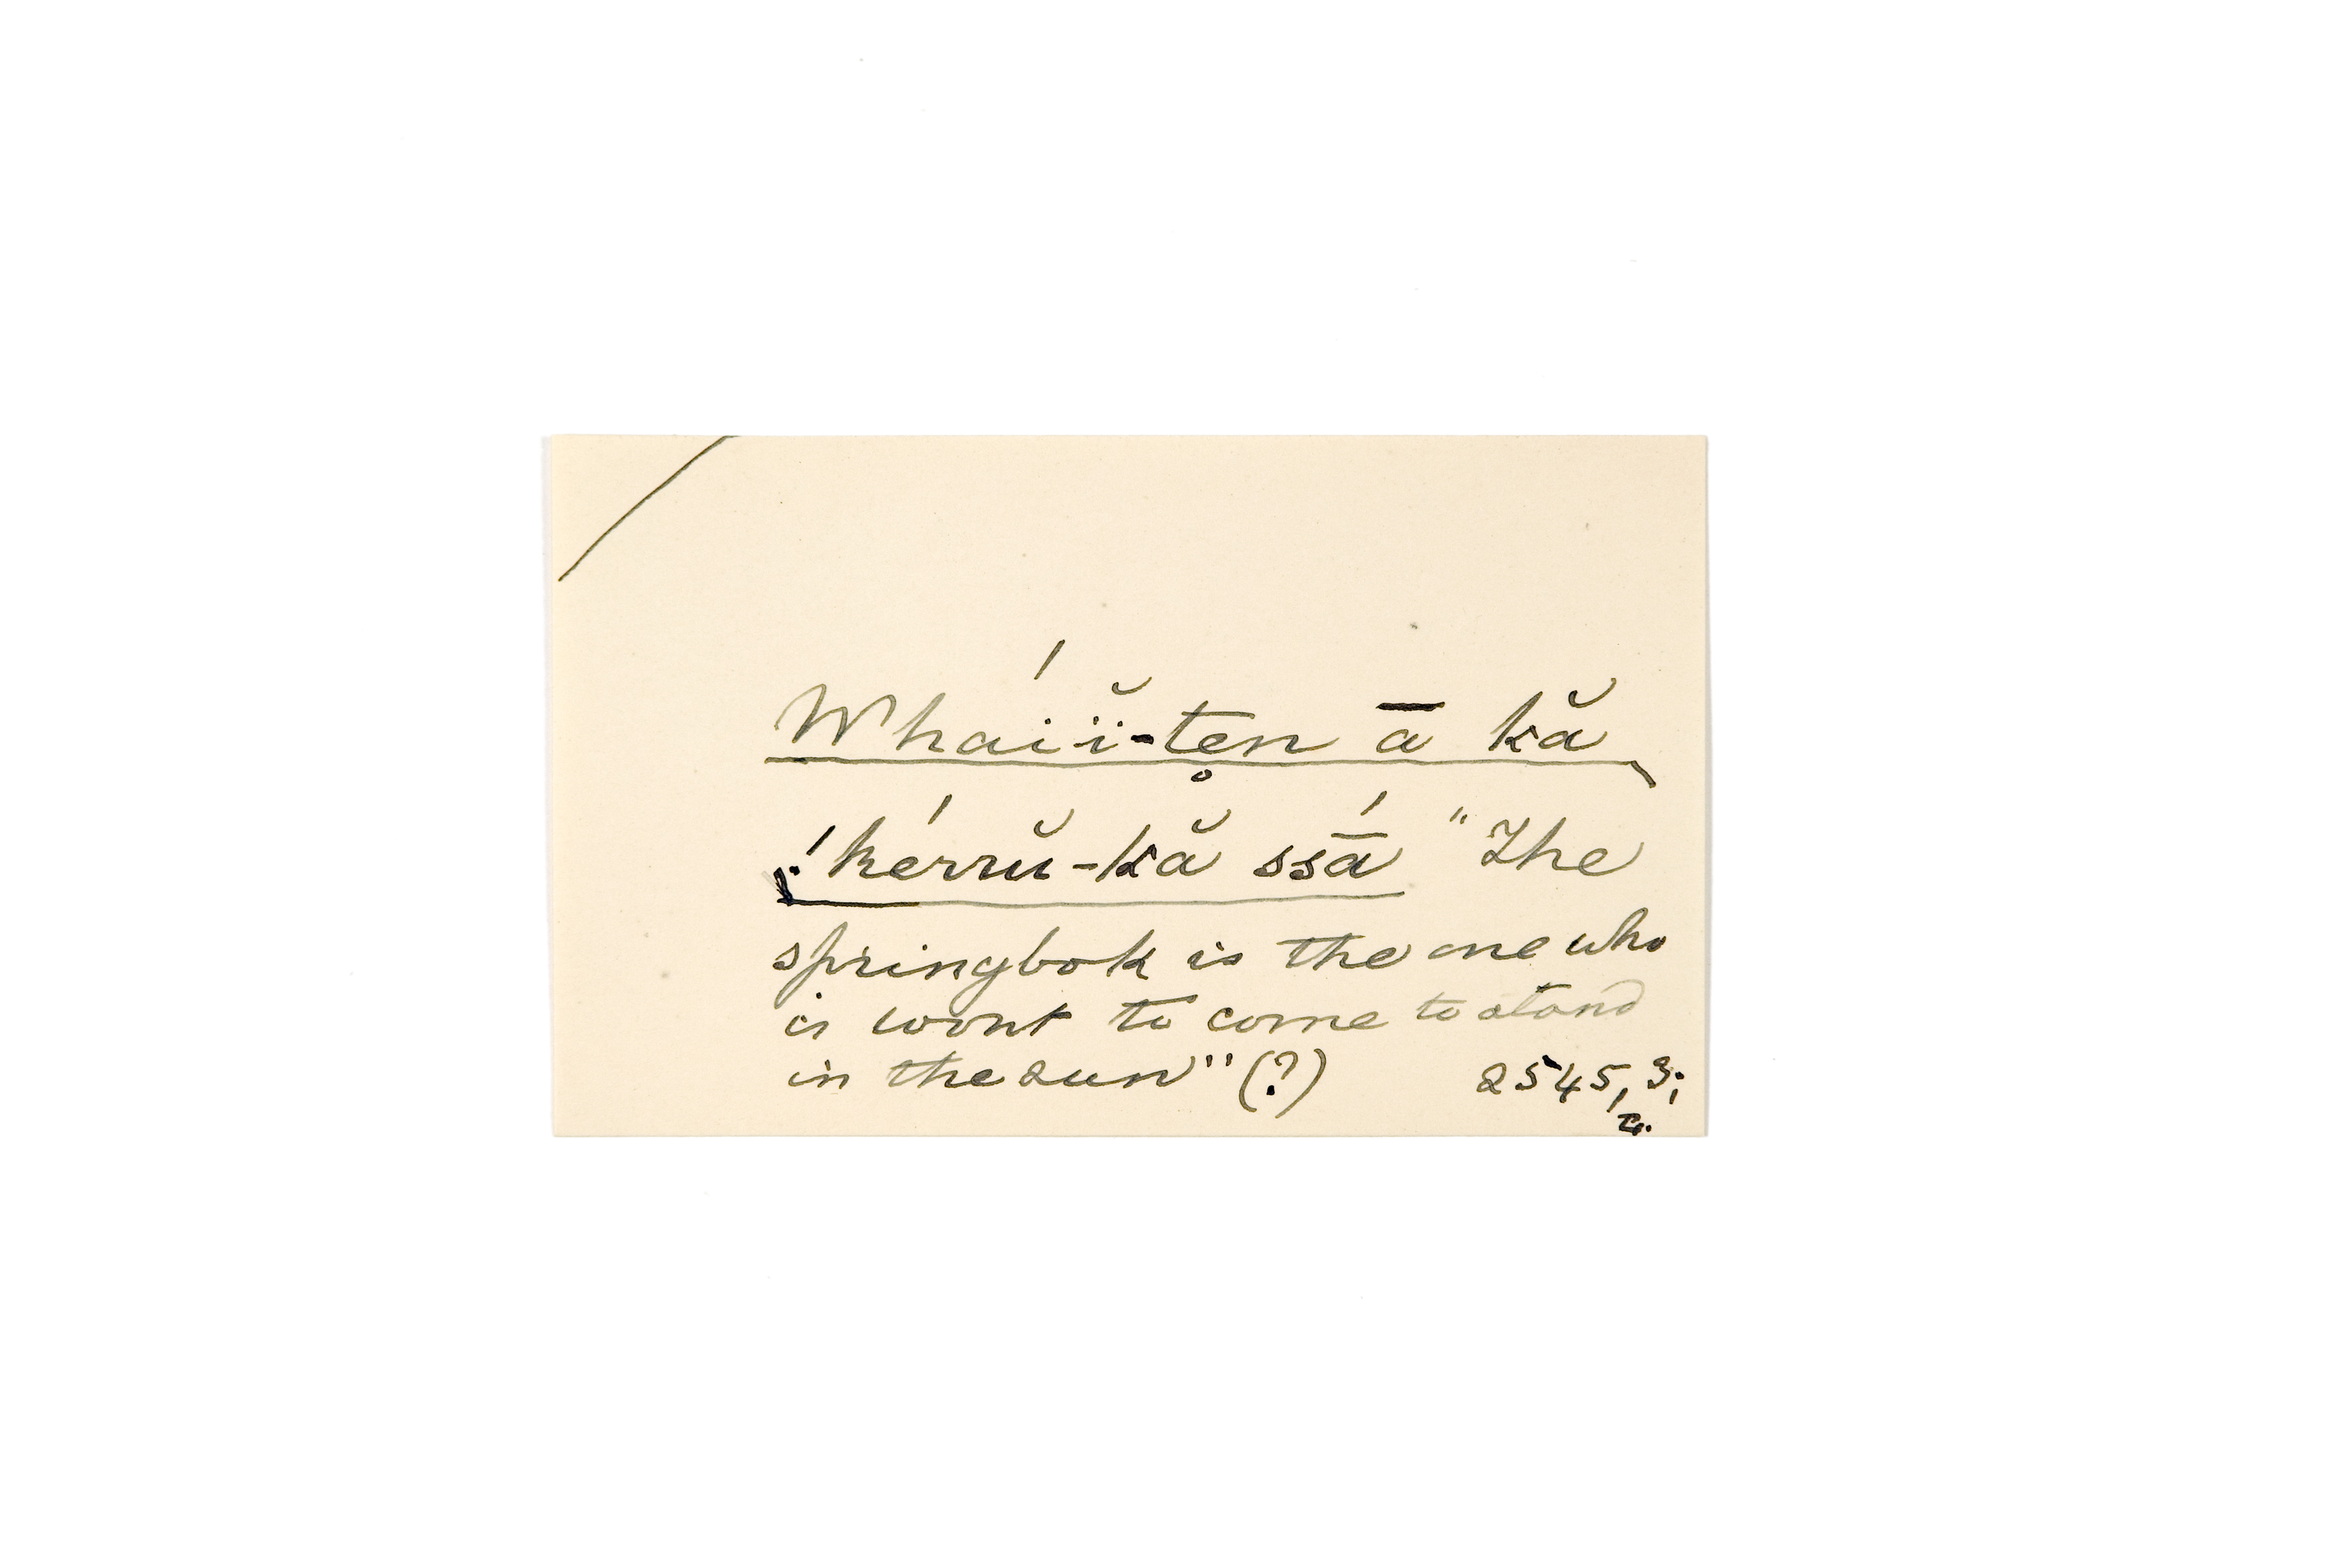 Whá́iï̆-ten̥ ā kă
!kérrŭ-kă ssā́ "The
springbok is the one who
is wont to come to stand
in the sun" (?) 2545, 3;
z.